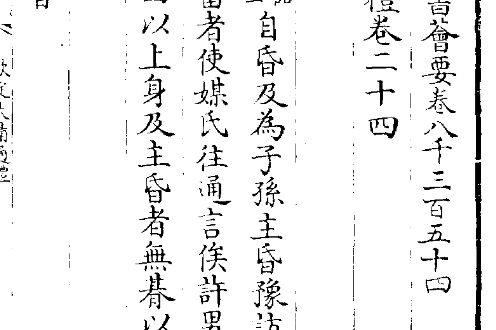 書薈要卷八千三百五十四
禮卷二十四
自昏及為子孫主昏豫訪
者使媒氏往通言俟許男
以上身及主昏者無朞以